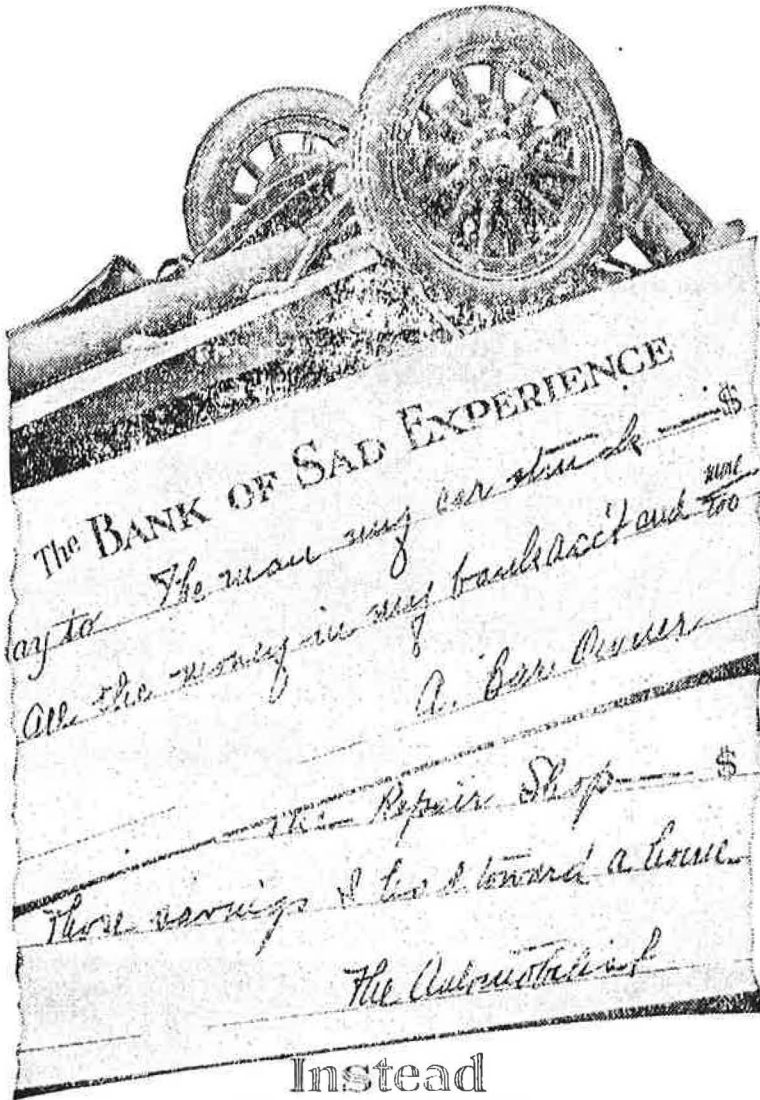 The BANK OF SAD EXPERIENCE
ay to The man my car struck — $
All the money in my bank acc't and more too
A. Car Owner
The Repair Shop — $
Those savings I had toward a home
The Automobilist
Instead